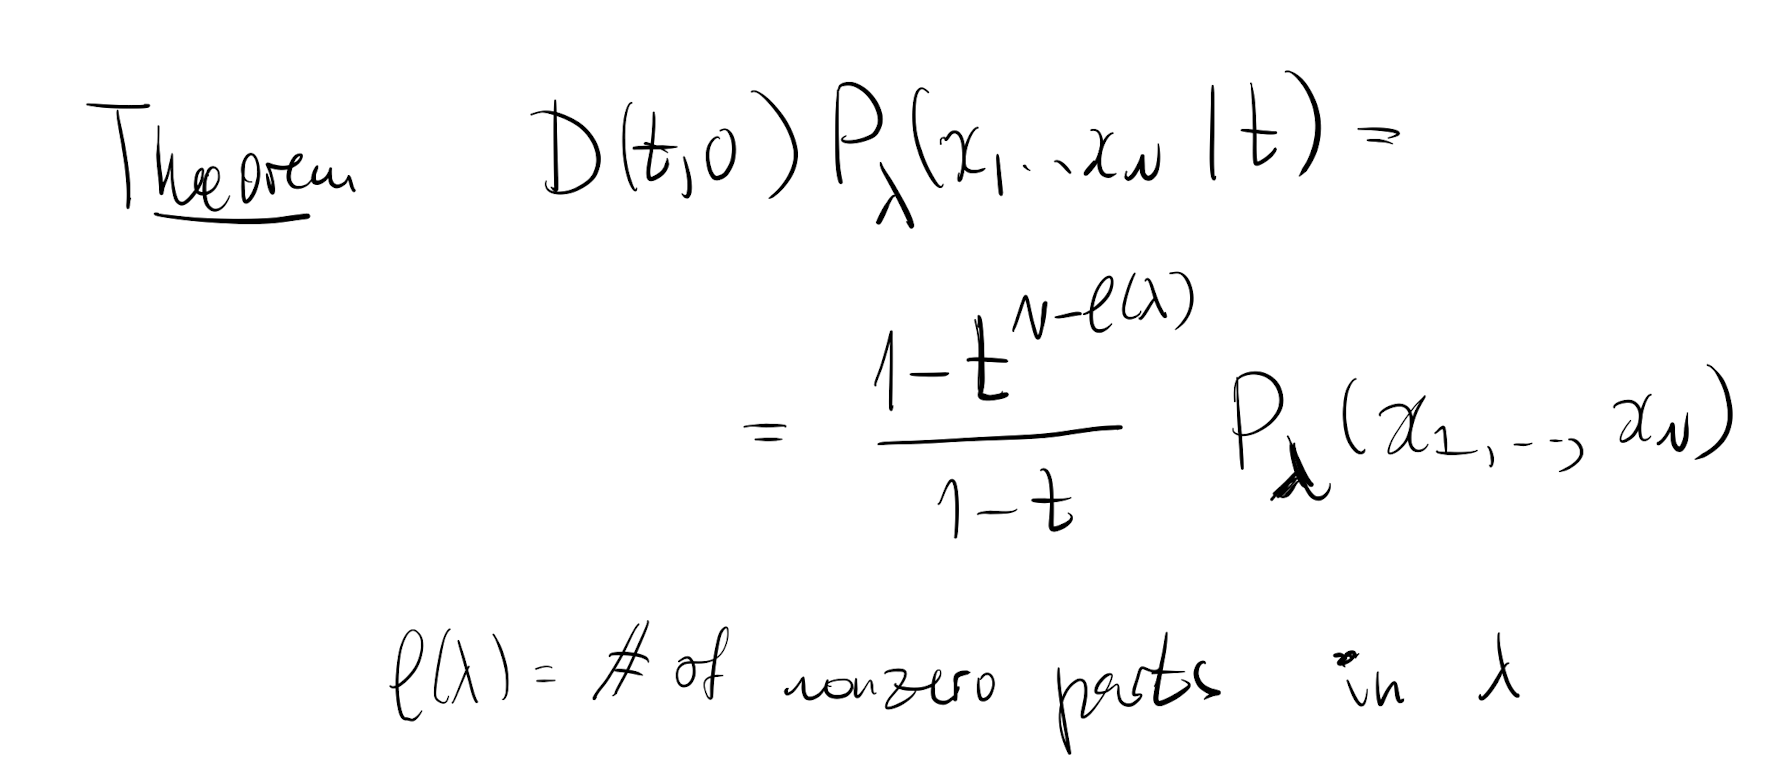 Theorem D(t,0) P_λ(x_1...x_N | t) =
= \frac{1-t^{N-ℓ(λ)}}{1-t} P_λ(x_1,...,x_N)
ℓ(λ) = # of nonzero parts in λ